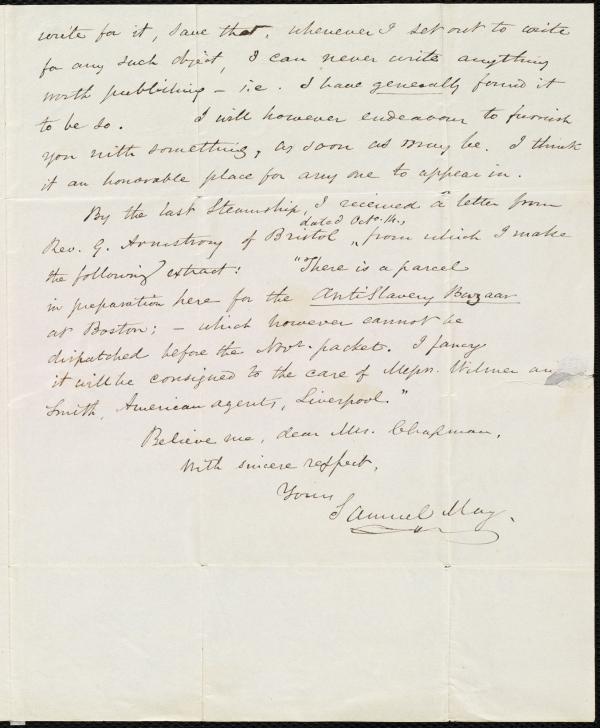 write for it, save that, whenever I set out to write
for any such object, I can never write anything
worth publishing – i.e. I have generally found it
to be so. I will however endeavour to furnish
you with something, as soon as may be. I think
it an honorable place for any one to appear in.
By the last Steamship, I received a letter from
dated Octo. 14.,
Rev. G. Armstrong of Bristol, from which I make
the following extract: "There is a parcel
in preparation here for the AntiSlavery Bazaar
at Boston; – which however cannot be
dispatched before the Novr. packet. I fancy
it will be consigned to the care of Messrs. Wilmer and
Smith, American agents, Liverpool."
Believe me, dear Mrs. Chapman,
With sincere respect,
Yours
Samuel May.